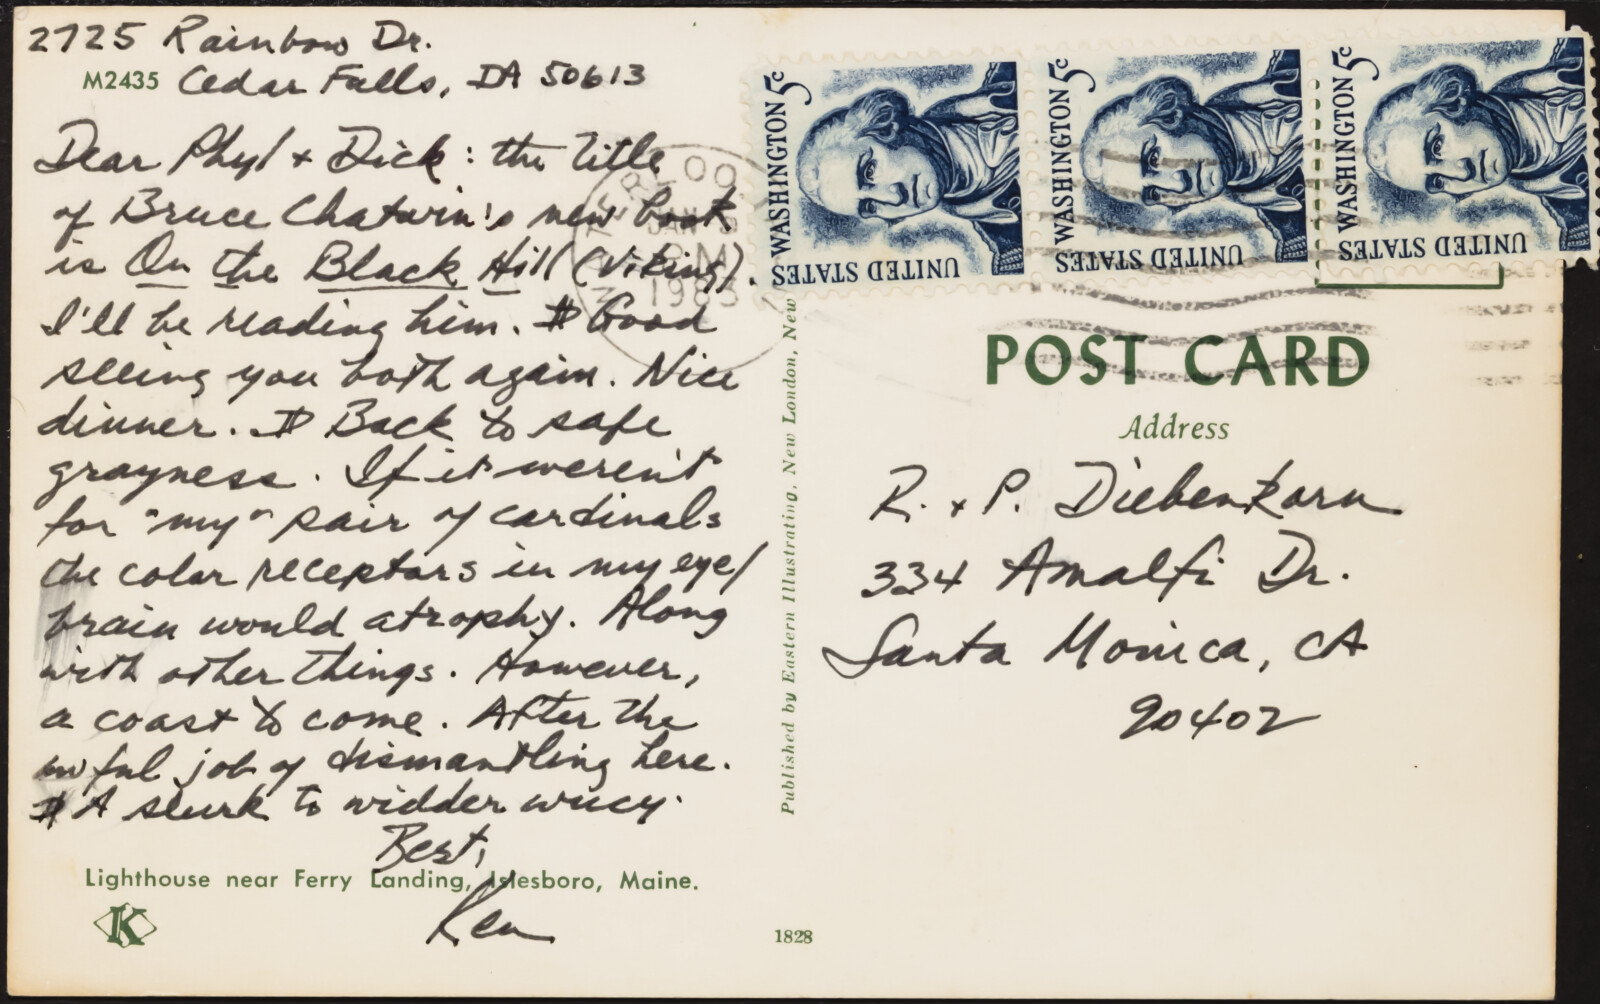 2725 Rainbow Dr.
M2435 Cedar Falls, IA 50613
Dear Phyl + Dick: the title
of Bruce Chatwin's new book
is On the Black Hill (Viking).
I'll be reading him. ¶ Good
seeing you both again. Nice
dinner. ¶ Back to safe
grayness. If it weren't
for "my" pair of cardinals
the color receptors in my eye/
brain would atrophy. Along
with other things. However,
a coast to come. After the
awful job of dismantling here.
¶ A slurk to widder wucy.
Best,
Lighthouse near Ferry Landing, Islesboro, Maine.
Ken
K
JAN
PM
1983
WASHINGTON 5c
UNITED STATES
WASHINGTON 5c
UNITED STATES
WASHINGTON 5c
UNITED STATES
Published by Eastern Illustrating, New London, New
1828
POST CARD
Address
R. + P. Diebenkorn
334 Amalfi Dr.
Santa Monica, CA
90402